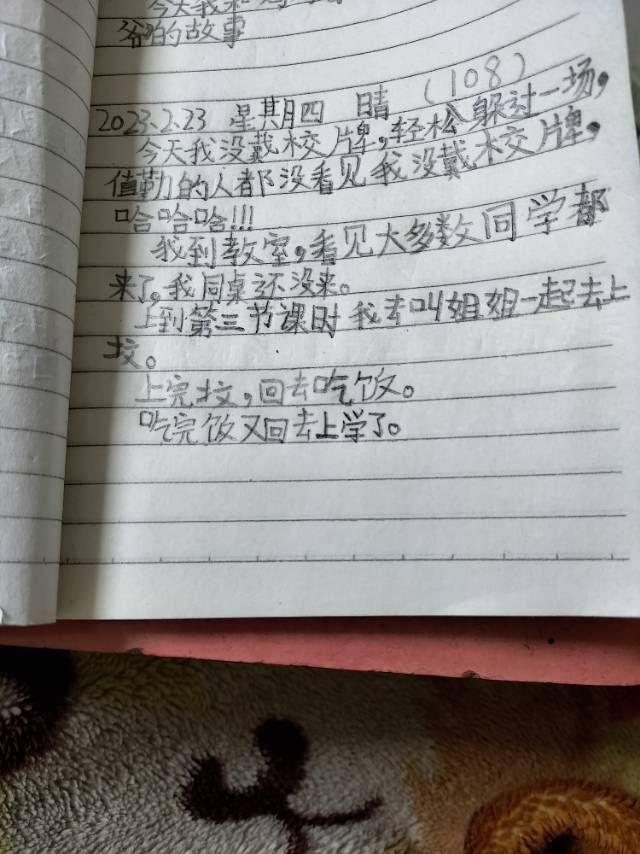 今天我和
爷的故事
2023.2.23 星期四 晴 (108)
今天我没戴校牌,轻松躲过一场,
值勤的人都没看见我没戴校牌,
哈哈哈!!!
我到教室,看见大多数同学都
来了,我同桌还没来。
上到第三节课时我去叫姐姐一起去上
坟。
上完坟,回去吃饭。
吃完饭又回去上学了。